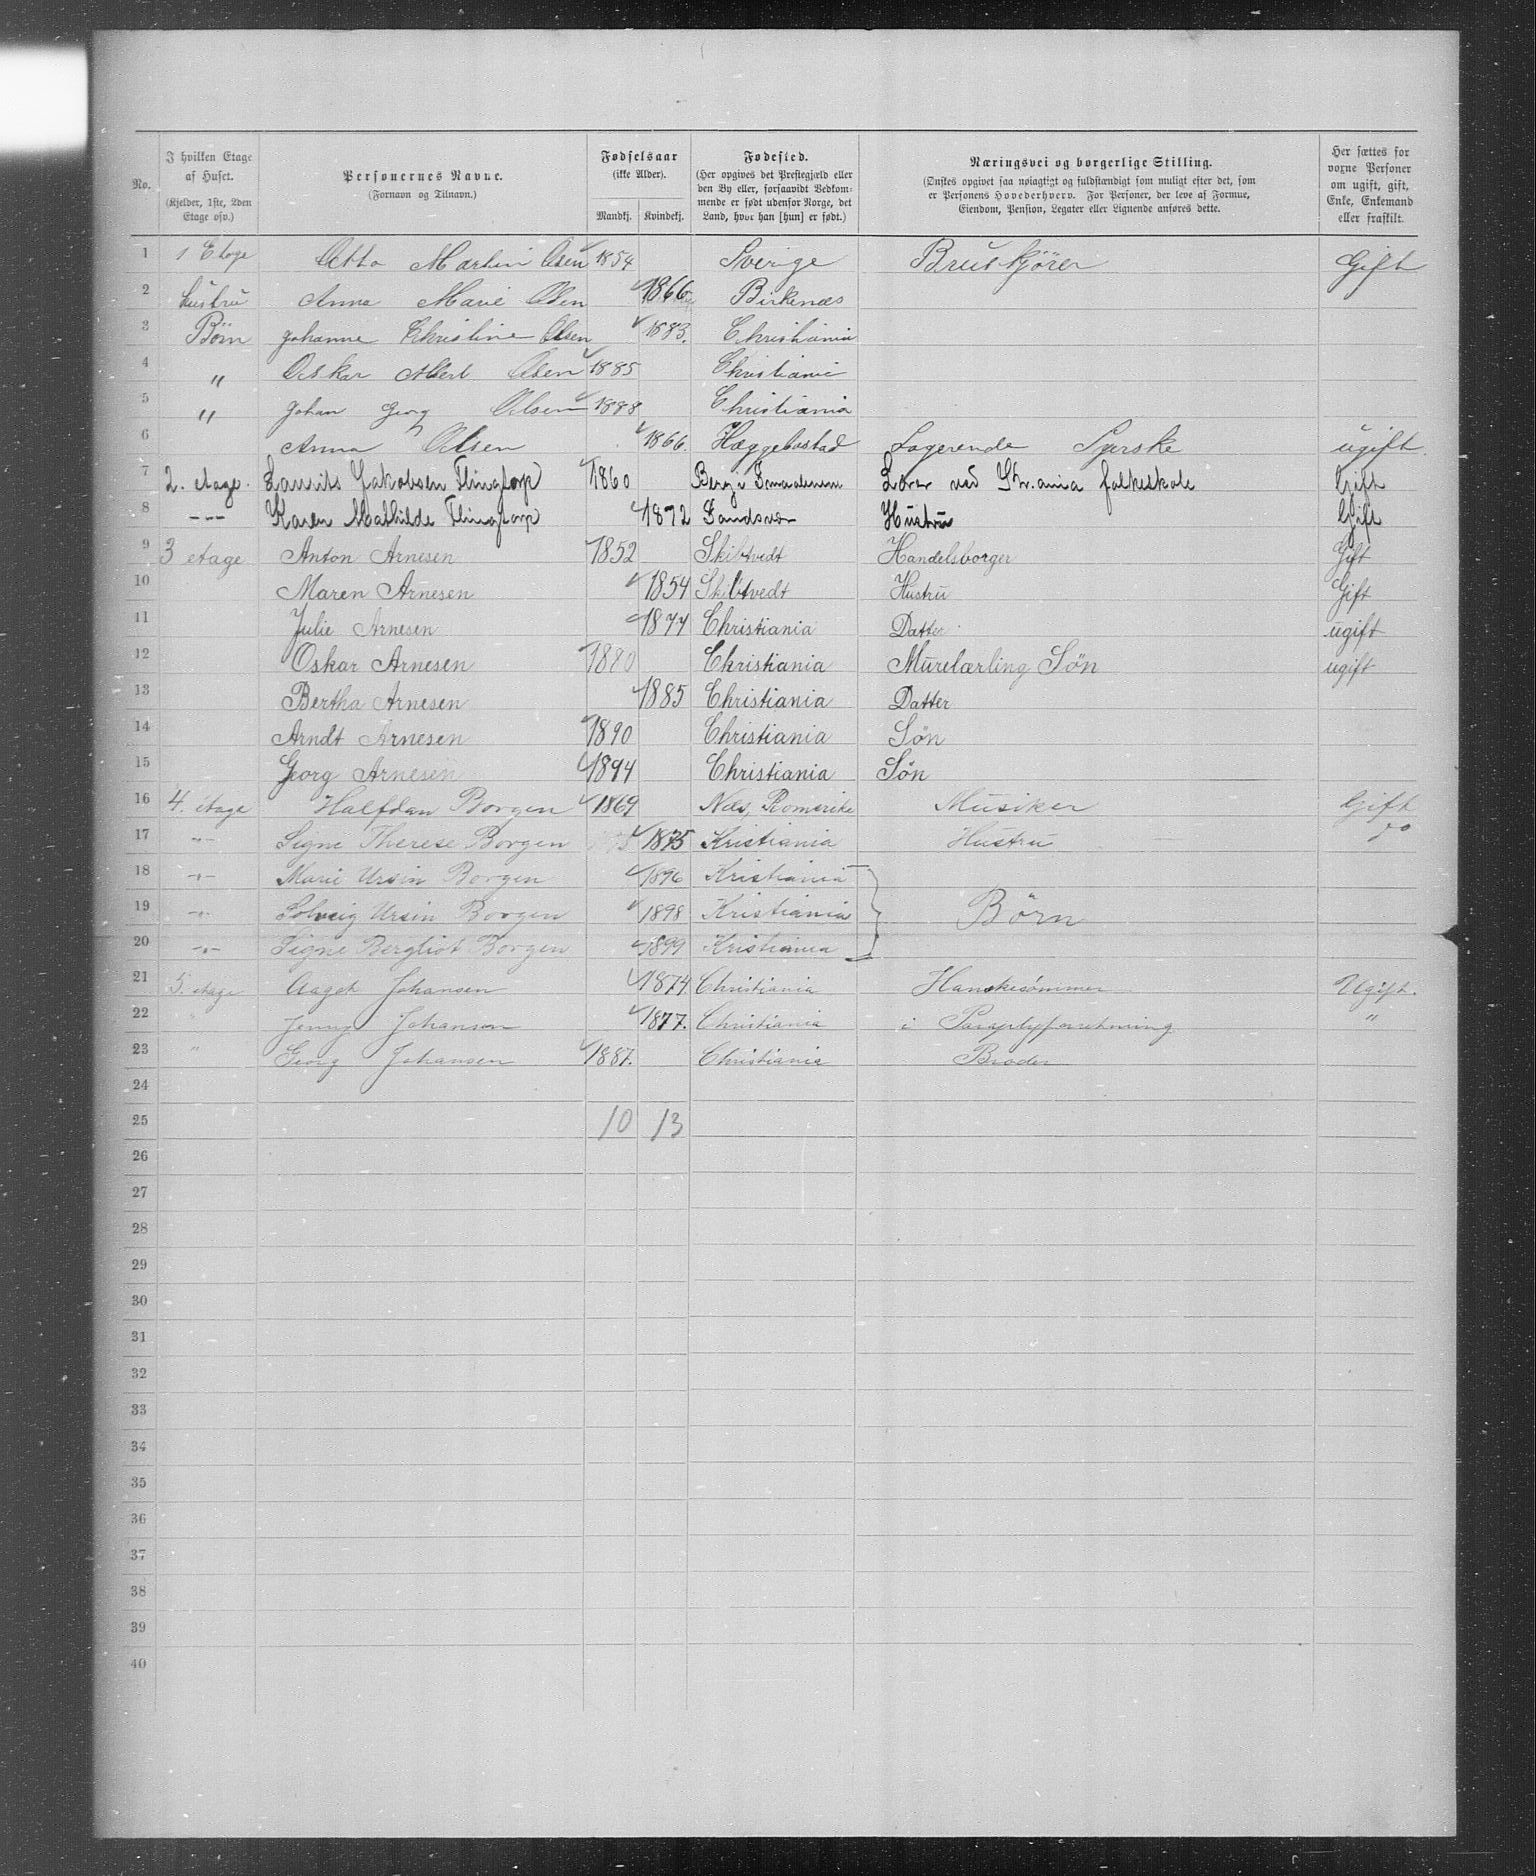 No. I hvilken Etage af Huset. (Kjelder, 1ste, 2den Etage osv.) Personernes Navne. (Fornavn og Tilnavn.) Fødselsaar (ikke Alder). Mandkj. Kvindekj. Fødested. (Her opgives det Prestegjæld eller den By eller, forsaavidt Vedkommende er født udenfor Norge, det Land, hvor han [hun] er født.) Næringsvei og borgerlige Stilling. (Ønskes opgivet saa nøiagtigt og fuldstændigt som muligt efter det, som er Personens Hovederhverv. For Personer, der leve af Formue, Eiendom, Pension, Legater eller Lignende anføres dette. Her sættes for voxne Personer om ugift, gift, Enke, Enkemand eller fraskilt.
1 1 Etage Otto Martin Olsen 1854 Sverige Bruskjører Gift
2 Hustru Anna Marie Olsen 1866 Birkenæs
3 Børn Johanne Christine Olsen 1883. Christiania
4 " Oskar Albert Olsen 1885 Christiania
5 " Johan Georg Olsen 1888 Christiania
6 Anna Olsen 1866. Hæggebostad Logerende Syerske ugift.
7 2. etage. Laurits Jakobsen Flingtorp 1860 Berg i Smaalenene Lærer ved Chr.ania folkeskole Gift
8 --- Karen Mathilde Flingtorp 1872 Sandsvær Hustru Gift
9 3 etage Anton Arnesen 1852 Skibtvedt Handelsborger Gift
10 Maren Arnesen 1854 Skibtvedt Hustru Gift
11 Julie Arnesen 1877 Christiania Datter ugift
12 Oskar Arnesen 1880 Christiania Murelærling Søn ugift
13 Bertha Arnesen 1885 Christiania Datter
14 Arndt Arnesen 1890 Christiania Søn
15 Georg Arnesen 1894 Christiania Søn
16 4. etage Halfdan Borgen 1869 Næs, Romerike Musiker Gift
17 -"- Signe Therese Borgen 1875 Kristiania Hustru Do
18 -"- Marie Ursin Borgen 1896 Kristiania
19 -"- Solveig Ursin Borgen 1898 Kristiania Børn
20 -"- Signe Bergliot Borgen 1899 Kristiania
21 5. etage Aagot Johansen 1874 Christiania Hanskesømmer Ugift.
22 " Jenny Johansen 1877. Christiania i Paraplyforretning "
23 " Georg Johansen 1887. Christiania Broder
24
25 10 13
26
27
28
29
30
31
32
33
34
35
36
37
38
39
40